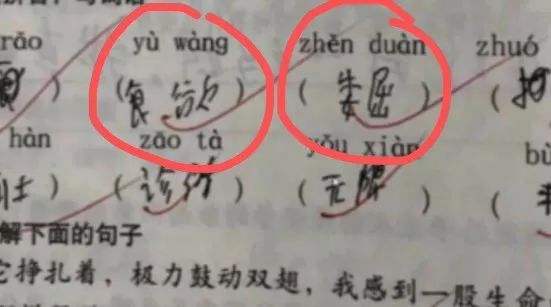 rǎo yù wàng zhěn duàn zhuó
) (食欲) (委屈) (
hàn zāo tà yǒu xiàn bù
) (诊疗) (无限) (
解下面的句子
它挣扎着，极力鼓动双翅，我感到一股生命